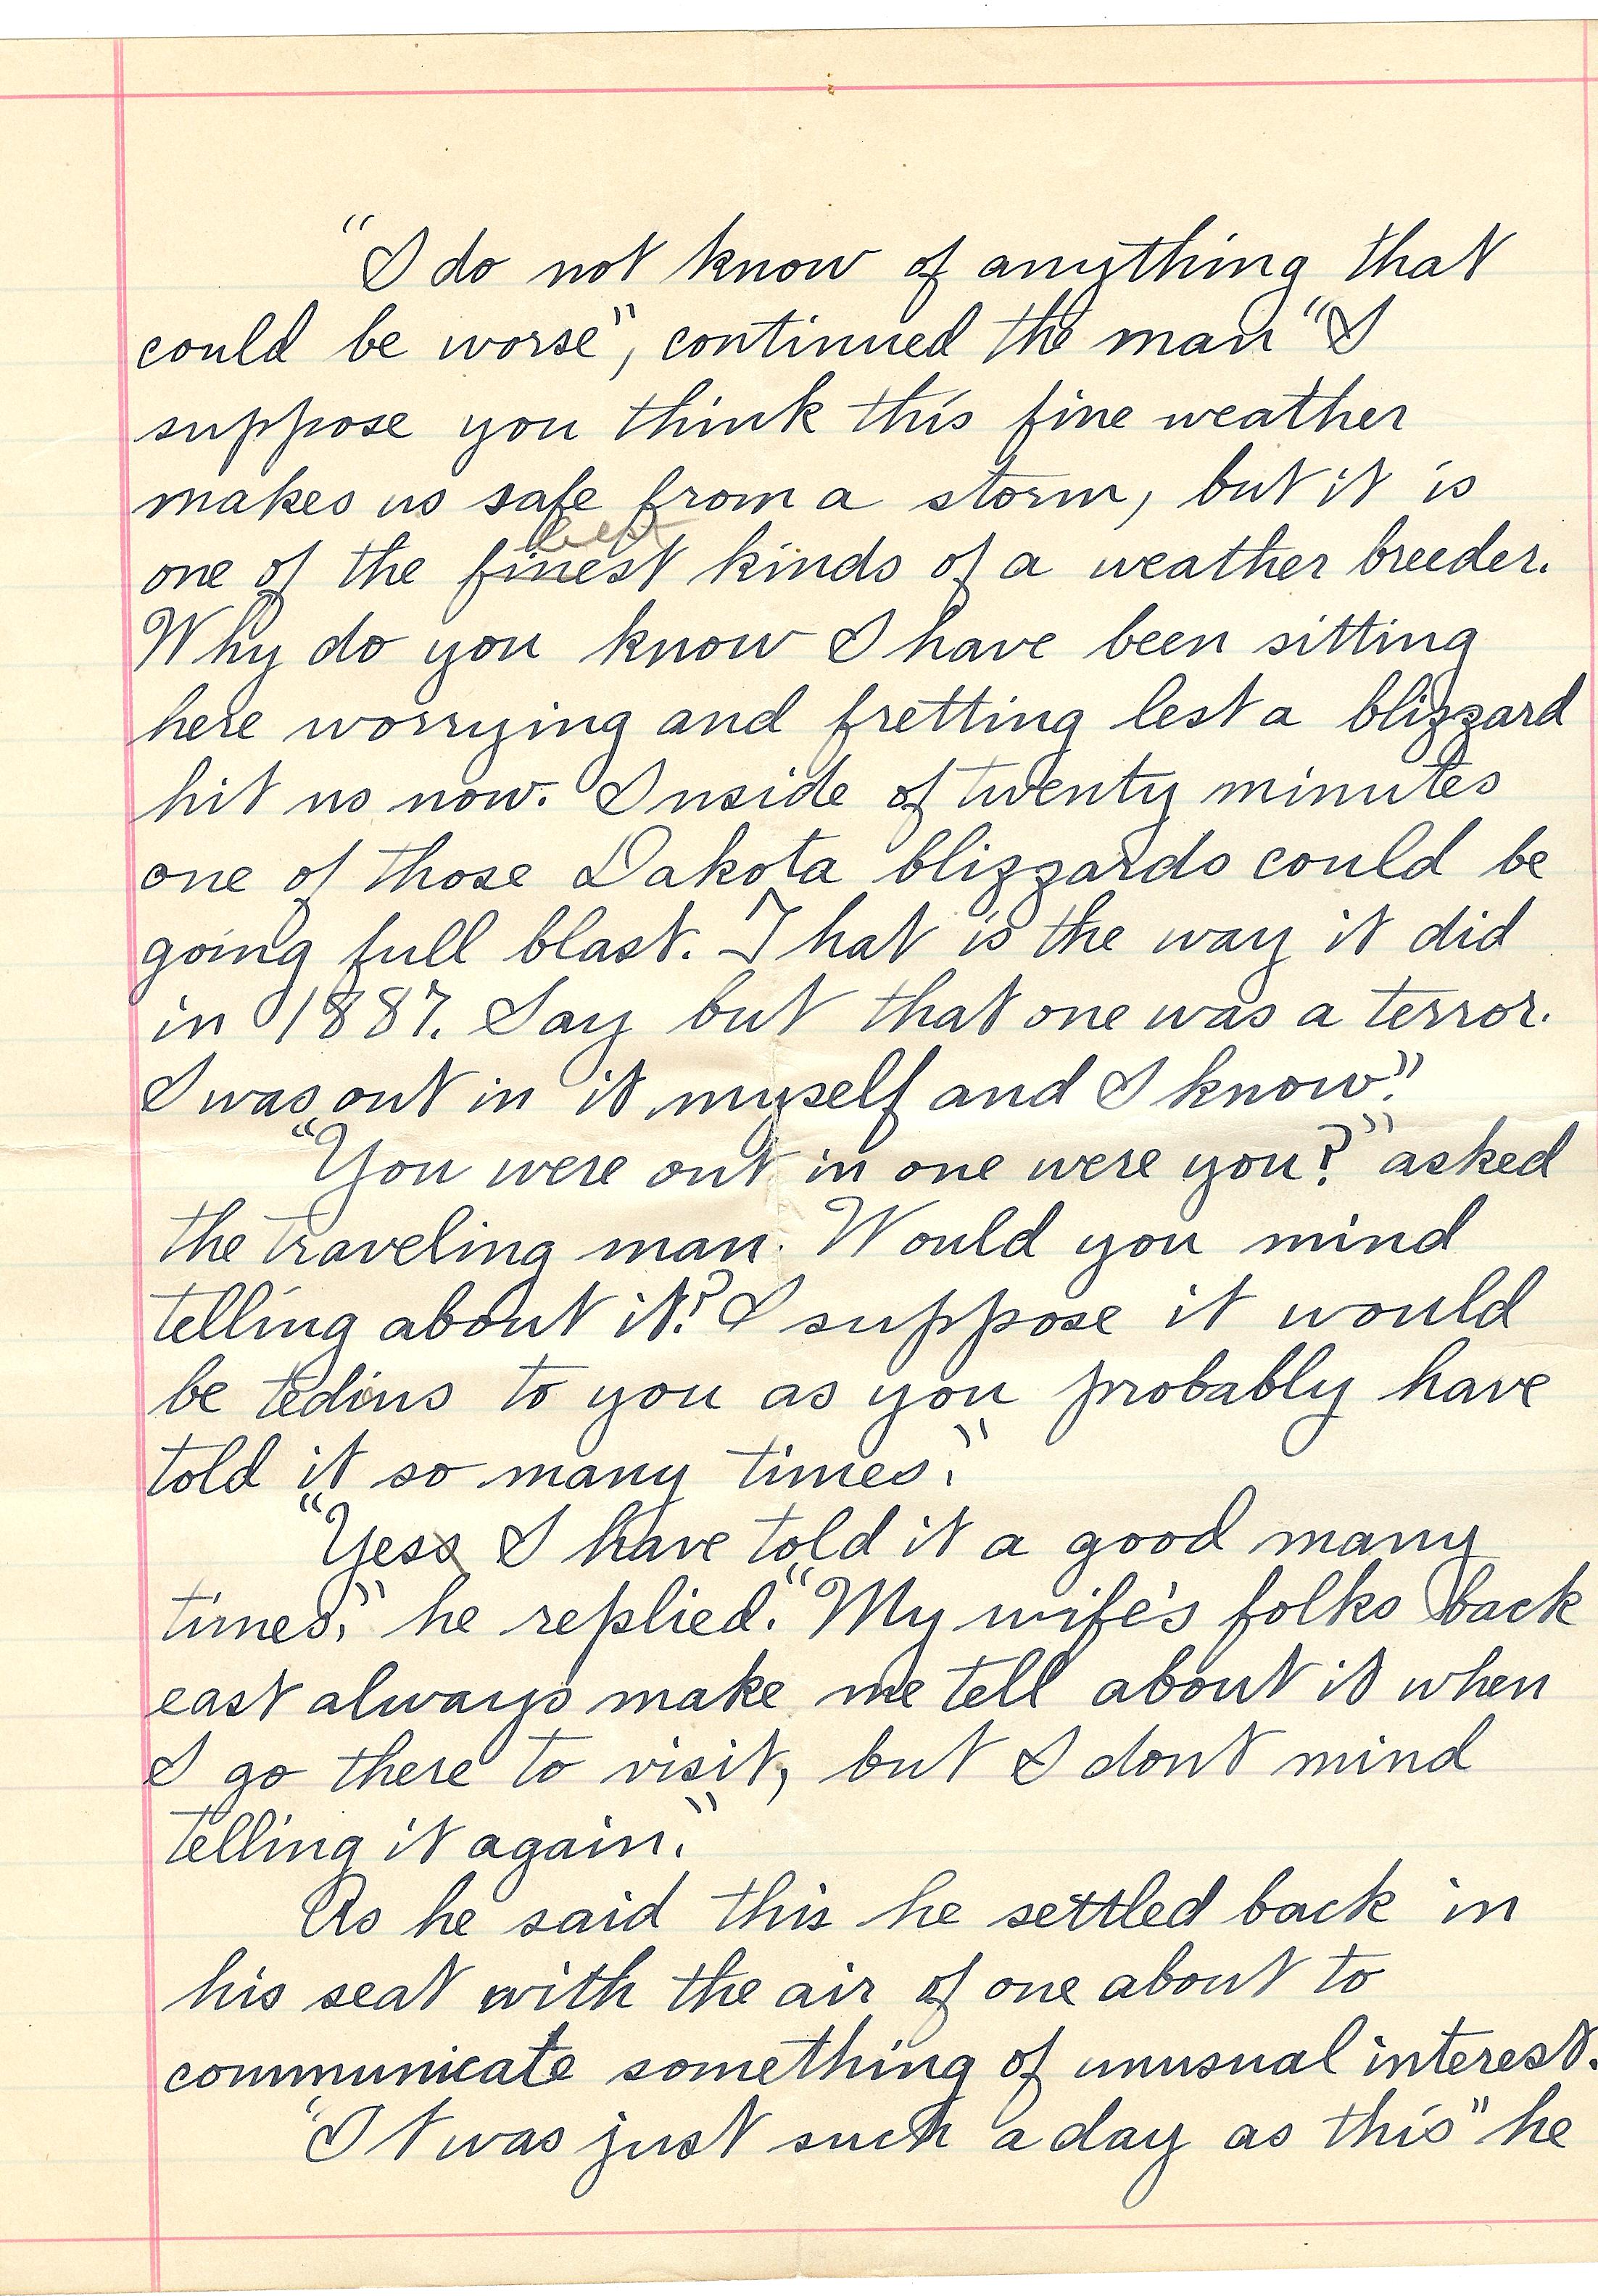 "I do not know of anything that
could be worse", continued the man "I
suppose you think this fine weather
makes us safe from a storm, but it is
best
one of the finest kinds of a weather breeder.
Why do you know I have been sitting
here worrying and fretting lest a blizzard
hit us now. Inside of twenty minutes
one of those Dakota blizzards could be
going full blast. That is the way it did
in 1887. Say but that one was a terror.
I was out in it myself and I know."
"You were out in one were you?" asked
the traveling man. Would you mind
telling about it? I suppose it would
be tedius to you as you probably have
told it so many times."
"Yess I have told it a good many
times," he replied. "My wife's folks back
east always make me tell about it when
I go there to visit, but I dont mind
telling it again."
As he said this he settled back in
his seat with the air of one about to
communicate something of unusual interest.
"It was just such a day as this" he